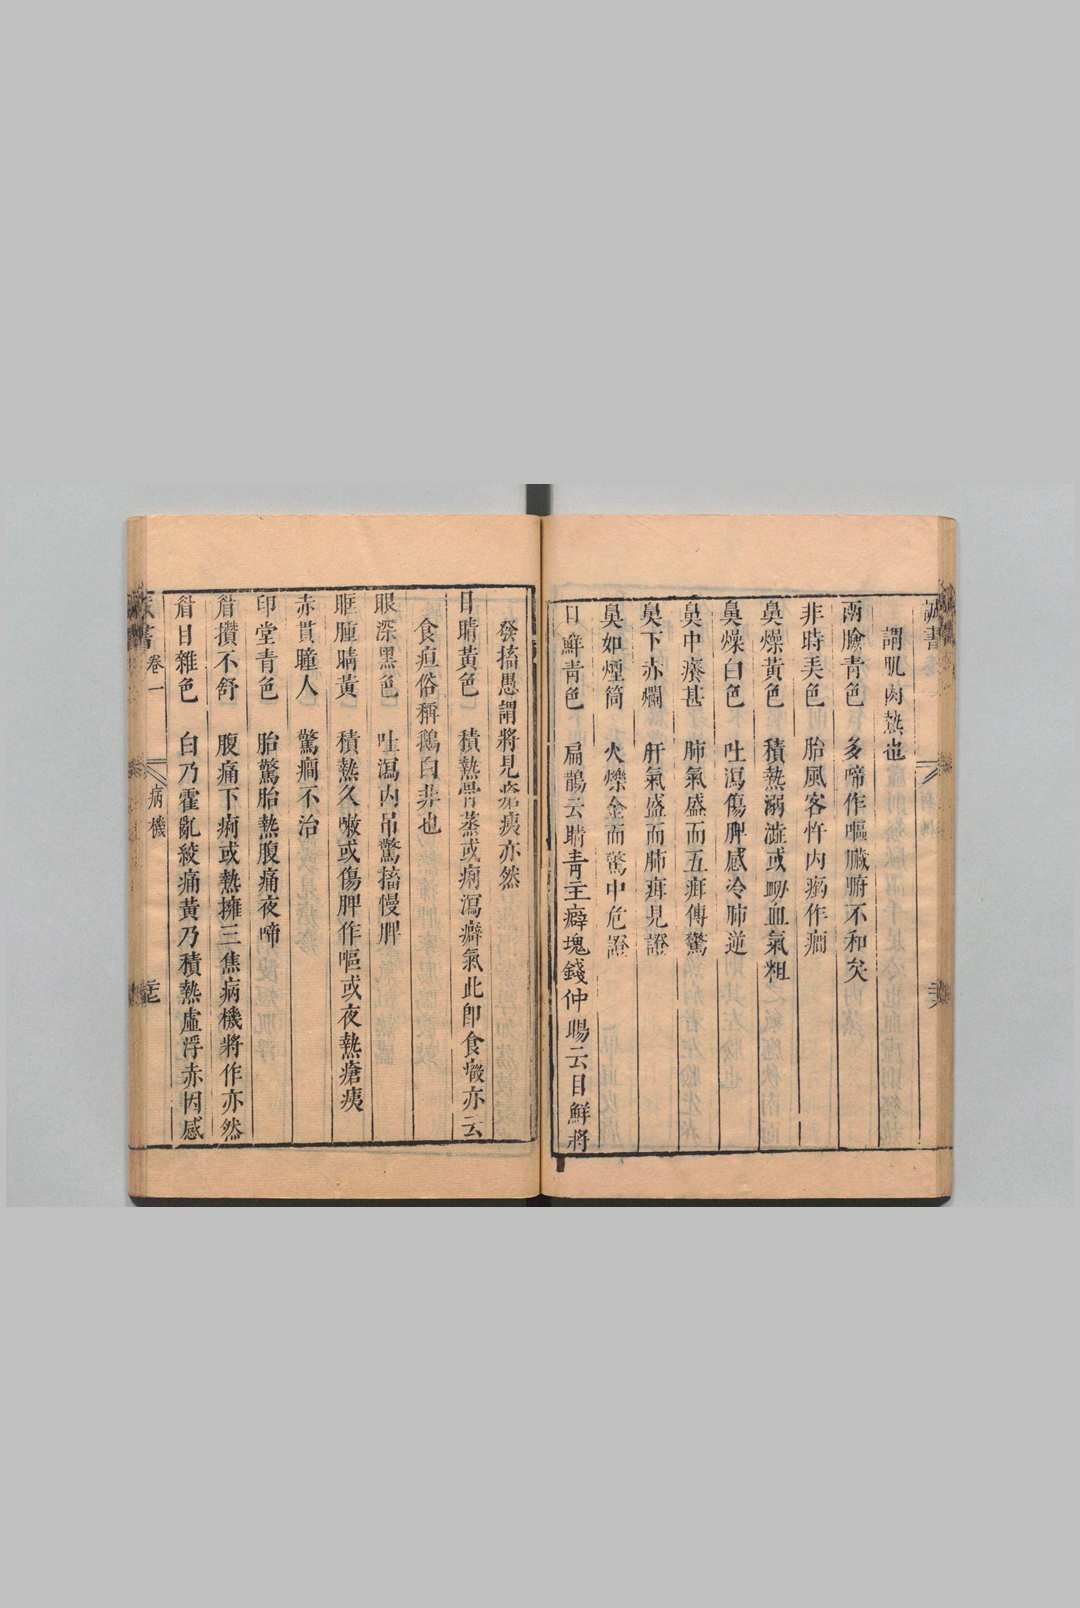 謂肌肉熱也
兩臉青色　多啼作嘔臟腑不和矣
非時美色　胎風客忤内瘹作癎
鼻燥黃色　積熱溺澁或衂血氣粗
鼻燥白色　吐瀉傷脾感冷肺逆
鼻中癢甚　肺氣盛而五疳傳驚
鼻下赤爛　肝氣盛而肺疳見證
鼻如煙筒　火爍金而驚中危證
目鮮青色　扁鵲云睛青主癖塊錢仲陽云目鮮將
發搐愚謂將見瘡痍亦然
目睛黃色　積熱骨蒸或痢瀉癖氣此即食癥亦云
食疸俗稱鵝白非也
眼深黑色　吐瀉内吊驚搐慢脾
眶腫睛黃　積熱久嗽或傷脾作嘔或夜熱瘡痍
赤貫瞳人　驚癎不治
印堂青色　胎驚胎熱腹痛夜啼
眉攢不舒　腹痛下痢或熱擁三焦病機將作亦然
眉目雜色　白乃霍亂絞痛黃乃積熱虛浮赤因感
書　卷一　病機